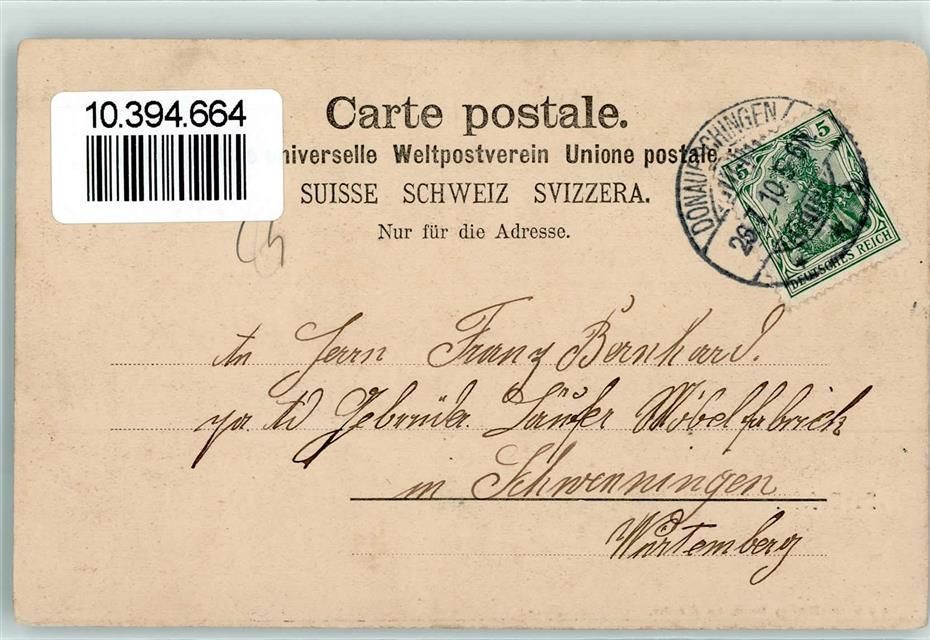 10.394.664
Carte postale.
niverselle Weltpostverein Unione postale
SUISSE SCHWEIZ SVIZZERA.
Nur für die Adresse.
DONAUESCHINGEN
26. 1. 10.
5
DEUTSCHES REICH
45
An Herrn Franz Bernhard.
Gebrüder Läufer Möbelfabrick
in Schwenningen
Würtemberg